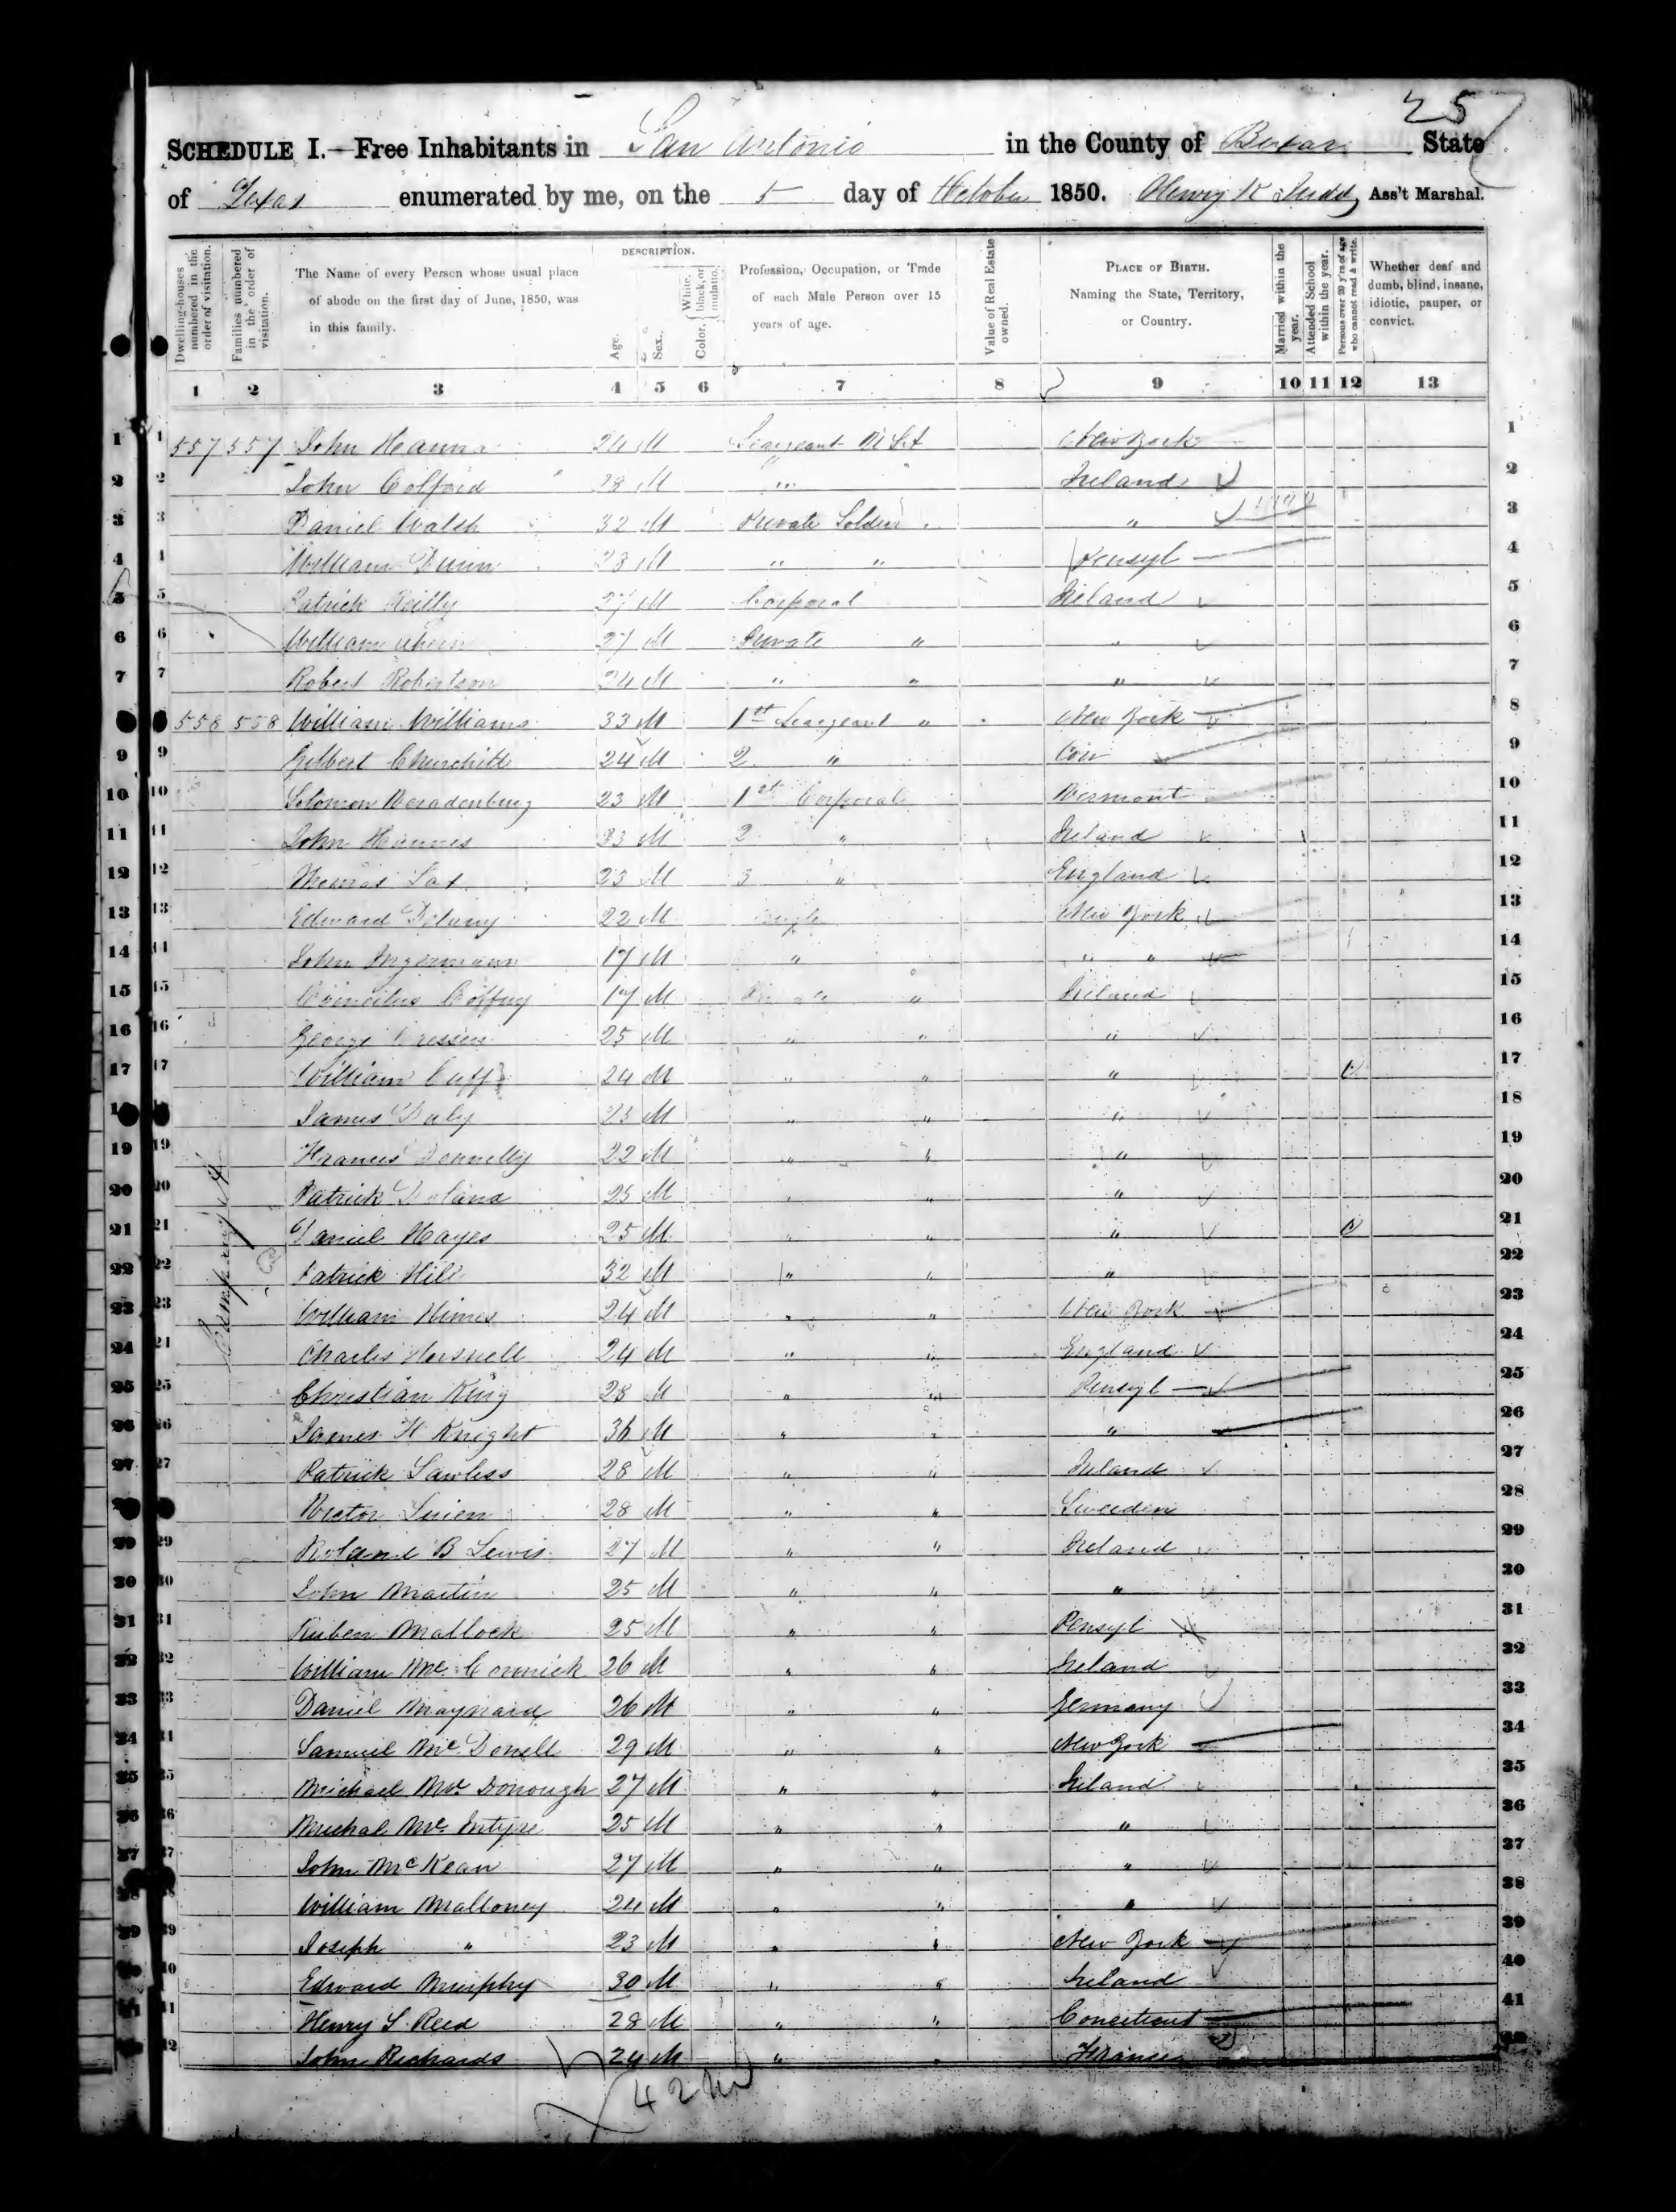 25
SCHEDULE I.—Free Inhabitants in San Antonio in the County of Bexar State
of Texas enumerated by me, on the 5 day of October 1850. Henry K Judd Ass't Marshal.
Dwelling-houses numbered in the order of visitation.
Families numbered in the order of visitation.
The Name of every Person whose usual place of abode on the first day of June, 1850, was in this family.
DESCRIPTION.
Age.
Sex.
Color, White, black, or mulatto.
Profession, Occupation, or Trade of each Male Person over 15 years of age.
Value of Real Estate owned.
PLACE OF BIRTH. Naming the State, Territory, or Country.
Married within the year.
Attended School within the year.
Persons over 20 y'rs of age who cannot read & write.
Whether deaf and dumb, blind, insane, idiotic, pauper, or convict.
1 2 3 4 5 6 7 8 9 10 11 12 13
1 557 557 John Hanna 24 M Seargeant New York 1
2 John Colford 28 M " Ireland 2
3 Daniel Walsh 32 M Private Soldier " 3
4 William Dunn 23 M " " Pensyl 4
5 Patrick Reilly 27 M Corporal Ireland 5
6 William 27 M Private " " 6
7 Robert Robertson 24 M " " " 7
558 558 William Williams 33 M 1st Seargeant " New York 8
9 Gilbert Churchill 24 M 2 " Con 9
10 Solomon 23 M 1st Corporal Vermont 10
11 John 23 M 2 " Ireland 11
12 Thomas 23 M 3 " England 12
13 Edward Delany 22 M Bugle New York 13
14 John Ingermann 17 M " " " 14
15 Cornelius Coffey 17 M Private " Ireland 15
16 George 25 M " " " 16
17 William Cuff 24 M " " " 17
James Daly 23 M " " " 18
19 Francis Donnelly 22 M " " " 19
20 Patrick 25 M " " " 20
21 Daniel Hayes 25 M " " " 21
22 Patrick Hill 32 M " " " 22
23 William Himes 24 M " " New York 23
24 Charles Horsnell 24 M " " England 24
25 Christian King 28 M " " Pensyl 25
26 James H Knight 36 M " " " 26
27 Patrick Lawless 28 M " " Ireland 27
Victor 28 M " " Sweeden 28
29 Roland B Lewis 27 M " " Ireland 29
30 John Martin 25 M " " " 30
31 Ruben Mallock 25 M " " Pensyl 31
32 William Mc Cormick 26 M " " Ireland 32
33 Daniel Maynard 26 M " " Germany 33
34 Samuel Mc Donell 29 M " " New York 34
35 Michael Mc Donough 27 M " " Ireland 35
36 Michal Mc Intyre 25 M " " " 36
37 John Mc Kean 27 M " " " 37
38 William Malloney 24 M " " " 38
39 Joseph " 23 M " " New York 39
40 Edward Murphy 30 M " " Ireland 40
41 Henry S Reed 28 M " " Conecticut 41
John Richards 24 M " " France
Company
42 M